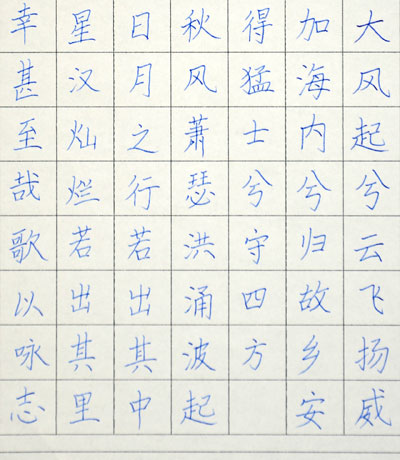 大风起兮云飞扬威
加海内兮归故乡安
得猛士兮守四方
秋风萧瑟洪涌波起
日月之行若出其中
星汉灿烂若出其里
幸甚至哉歌以咏志